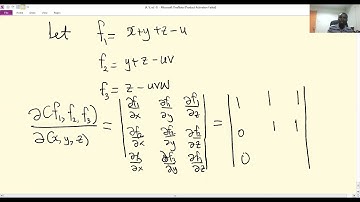 Let f₁ = x+y+z-u
f₂ = y+z-uv
f₃ = z-uvw
∂(f₁, f₂, f₃) / ∂(x, y, z) = | ∂f₁/∂x ∂f₁/∂y ∂f₁/∂z | = | 1 1 1 |
| ∂f₂/∂x ∂f₂/∂y ∂f₂/∂z | | 0 1 1 |
| ∂f₃/∂x ∂f₃/∂y ∂f₃/∂z | | 0